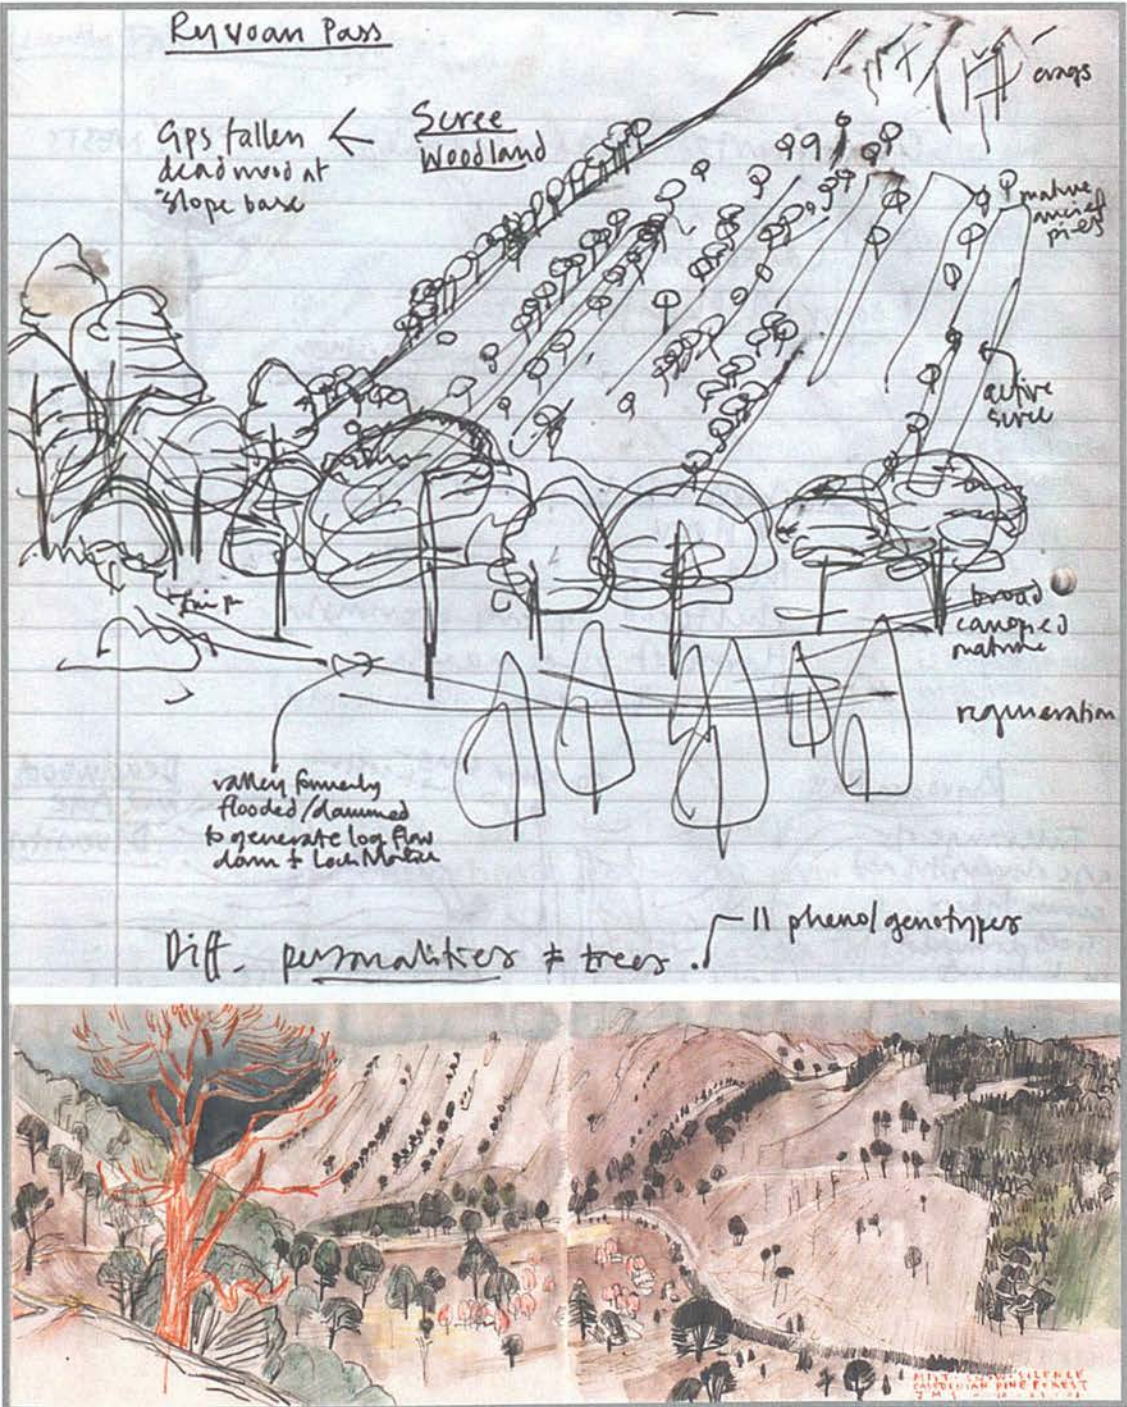 Ryvoan Pass
crags
Gps fallen
deadwood at
slope base
Scree
Woodland
mature
pines
active
scree
broad
canopied
mature
regeneration
valley formerly
flooded/dammed
to generate log flow
down
Diff. personalities trees
11 pheno/genotypes
MIST SNOW SILENCE
CALEDONIAN PINE FOREST